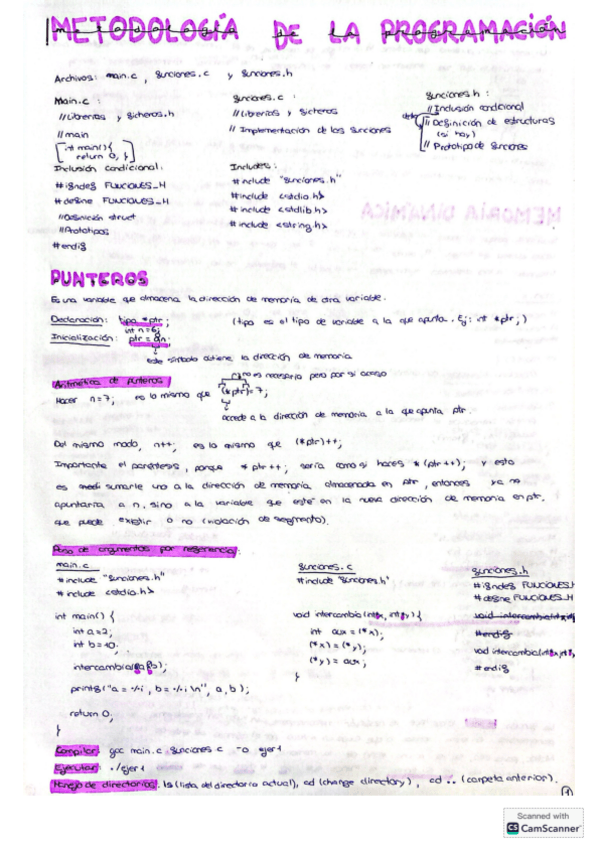 METODOLOGÍA DE LA PROGRAMACIÓN
Archivos: main.c, funciones.c y funciones.h
Main.c:
//Librerías y ficheros.h
//main
int main(){
return 0; }
funciones.c:
//Librerías y ficheros
//Implementación de las funciones
funciones.h:
//Inclusión condicional
//Definición de estructuras
(si hay)
//Prototipo de funciones
Inclusión condicional:
#ifndef FUNCIONES_H
#define FUNCIONES_H
//Definición struct
//Prototipos
#endif
Includes:
#include "funciones.h"
#include <stdio.h>
#include <stdlib.h>
#include <string.h>
PUNTEROS
Es una variable que almacena la dirección de memoria de otra variable.
Declaración: tipo *ptr; (tipo es el tipo de variable a la que apunta. Ej: int *ptr;)
int n=6;
Inicialización: ptr = &n;
este símbolo obtiene la dirección de memoria
Aritmética de punteros
no es necesario pero por si acaso
Hacer n=7; es lo mismo que (*ptr)=7;
accede a la dirección de memoria a la que apunta ptr.
Del mismo modo, n++; es lo mismo que (*ptr)++;
Importante el paréntesis, porque *ptr++; sería como si haces *(ptr++); y esto
es sumarle uno a la dirección de memoria almacenada en ptr, entonces ya no
apuntaría a n, sino a la variable que esté en la nueva dirección de memoria en ptr,
que puede existir o no (violación de segmento).
Paso de argumentos por referencia:
main.c
#include "funciones.h"
#include <stdio.h>
int main() {
int a=2;
int b=10;
intercambia(&a,&b);
printf("a = %i, b = %i \n", a, b);
return 0;
}
funciones.c
#include "funciones.h"
void intercambia (int*x, int*y) {
int aux = (*x);
(*x) = (*y);
(*y) = aux;
}
funciones.h
#ifndef FUNCIONES_H
#define FUNCIONES_H
#endif
void intercambia(int*x,int*y);
#endif
Compilar: gcc main.c funciones.c -o ejer1
Ejecutar: ./ejer1
Manejo de directorios: ls (lista del directorio actual), cd (change directory), cd .. (carpeta anterior).
1
Scanned with
CS CamScanner